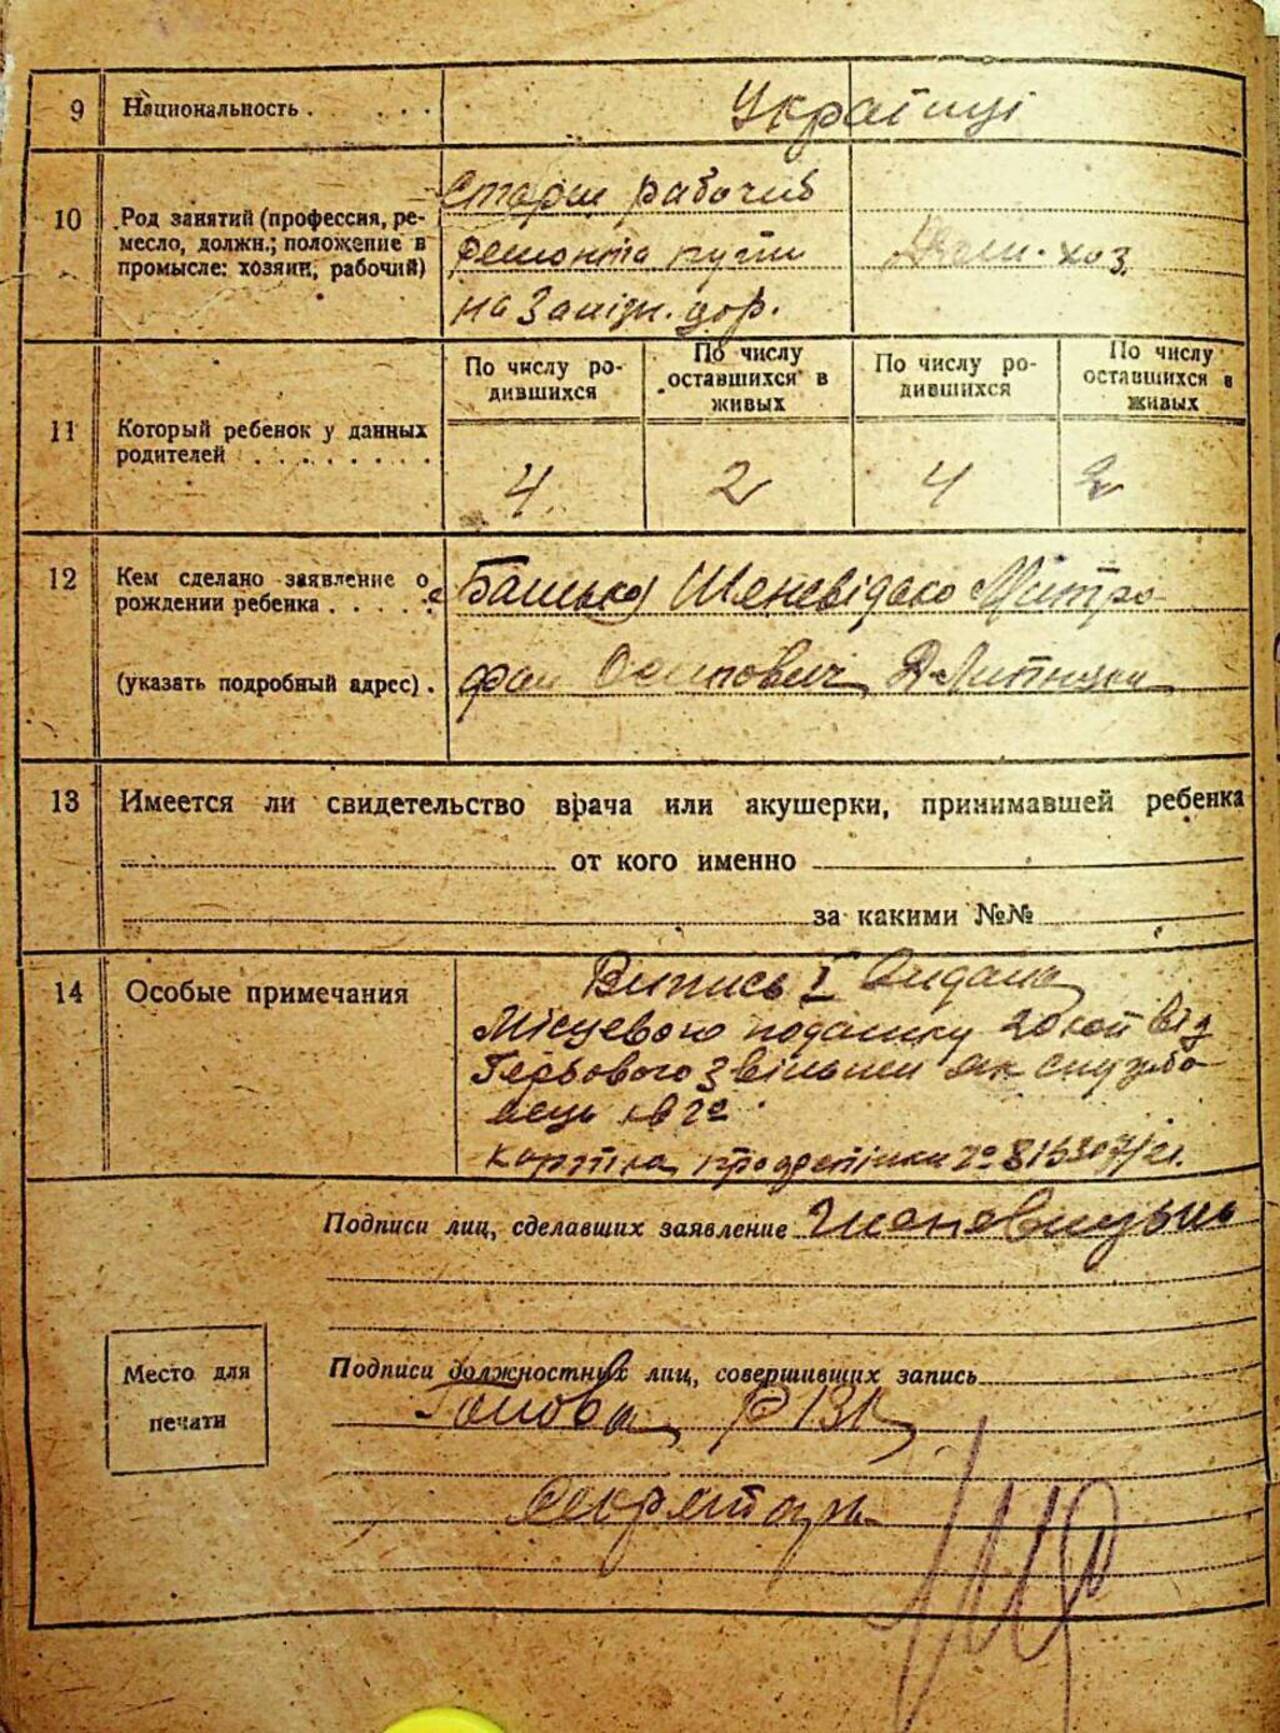 9 Национальность . . . . Українці
10 Род занятий (профессия, ре-
месло, должн.; положение в
промысле: хозяин, рабочий)
Старш рабочий
ремонта пути
на Залізн. дор.
Дом. хоз.
По числу ро-
дившихся
По числу
оставшихся в
живых
По числу ро-
дившихся
По числу
оставшихся в
живых
11 Который ребенок у данных
родителей . . . . . . . .
4 2 4 2
12 Кем сделано заявление о
рождении ребенка . . . .
(указать подробный адрес) .
Батько Шеневідько Митро-
фан Осипович
13 Имеется ли свидетельство врача или акушерки, принимавшей ребенка
от кого именно
за какими №№
14 Особые примечания
Випись I видана
Місцевого податку 20 коп від
Гербового звільнен як службо-
вець
картка
Подписи лиц, сделавших заявление
Подписи должностных лиц, совершивших запись
Голова
Секретарь
Место для
печати